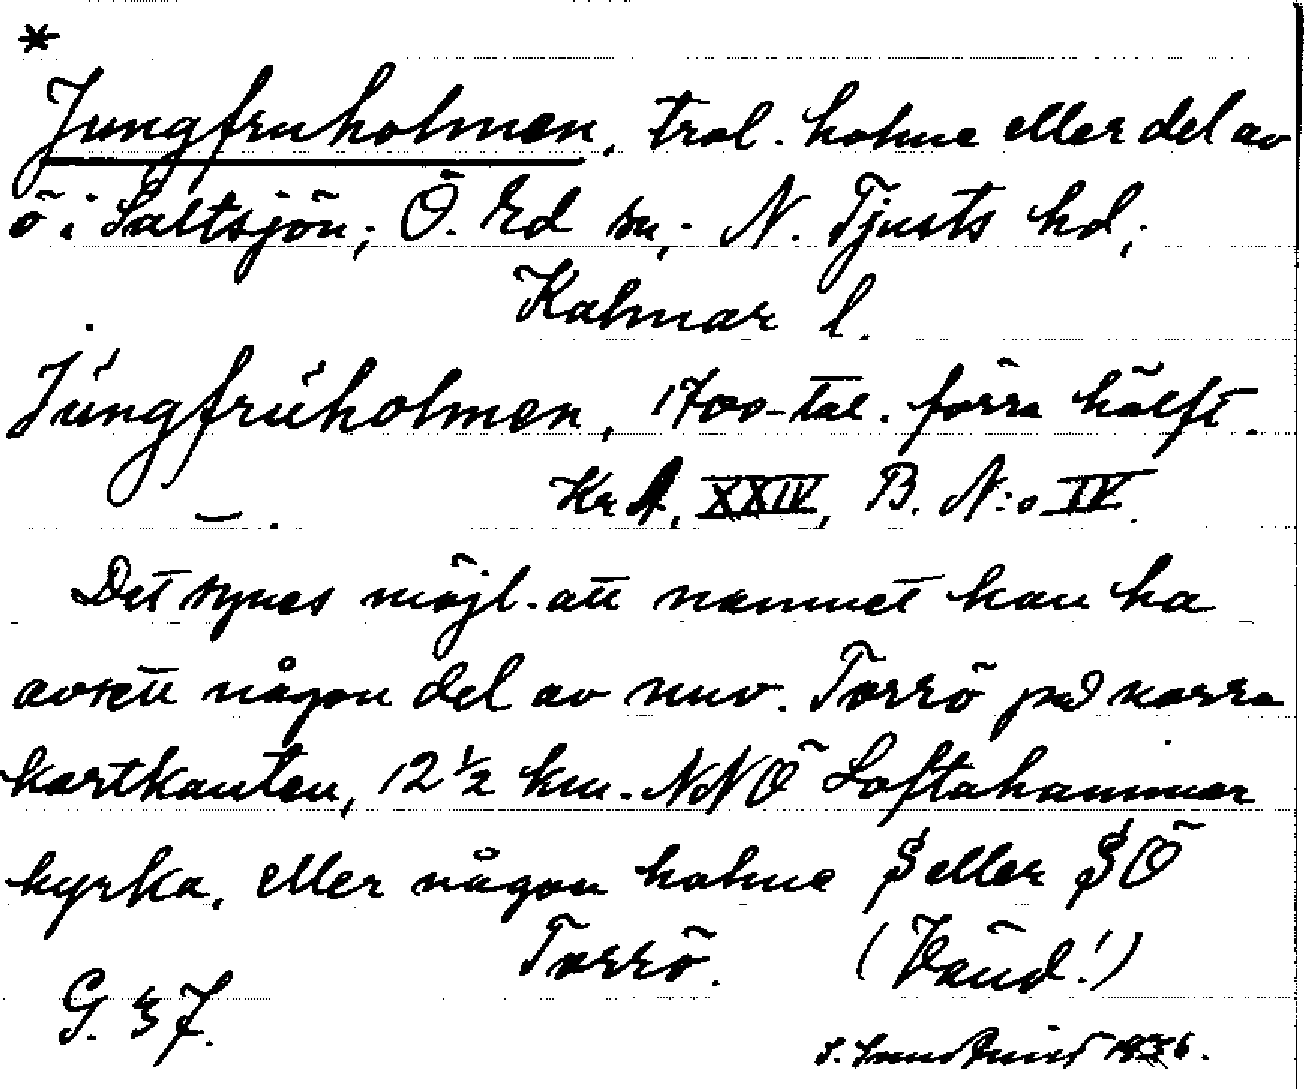 *
Jungfruholmen, trol. holme eller del av
ö i Saltsjön; Ö. Ed sn; N. Tjusts hd;
Kalmar l.
Jungfruholmen, 1700-tal. förra hälft.
KrA, XXIV, B. N:o IV.
Det synes möjl. att namnet kan ha
avsett någon del av nuv. Torrö på norra
kartkanten, 12 ½ km. NNÖ Loftahammar
kyrka, eller någon holme S eller SÖ
Torrö. (Vänd!)
G. 37.
1936.